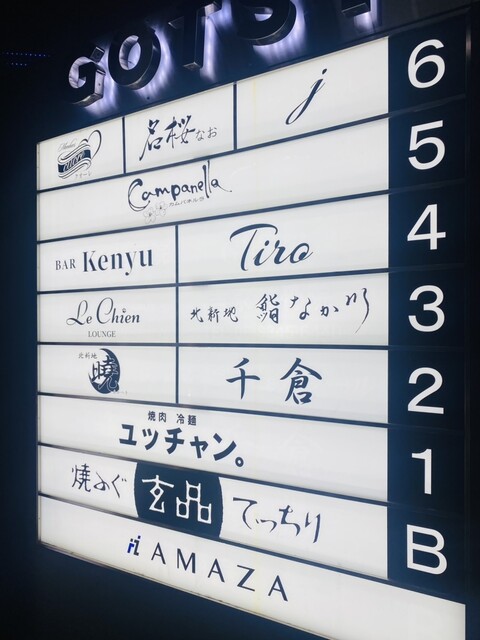 GOTS
名桜なお
j
6
Campanella
カムパネルラ
5
BAR Kenyu
Tiro
4
Le Chien
LOUNGE
北新地 鮨 なか川
3
北新地
曉
千倉
2
焼肉 冷麺
ユッチャン。
1
焼ふぐ 玄品 てっちり
B
AMAZA